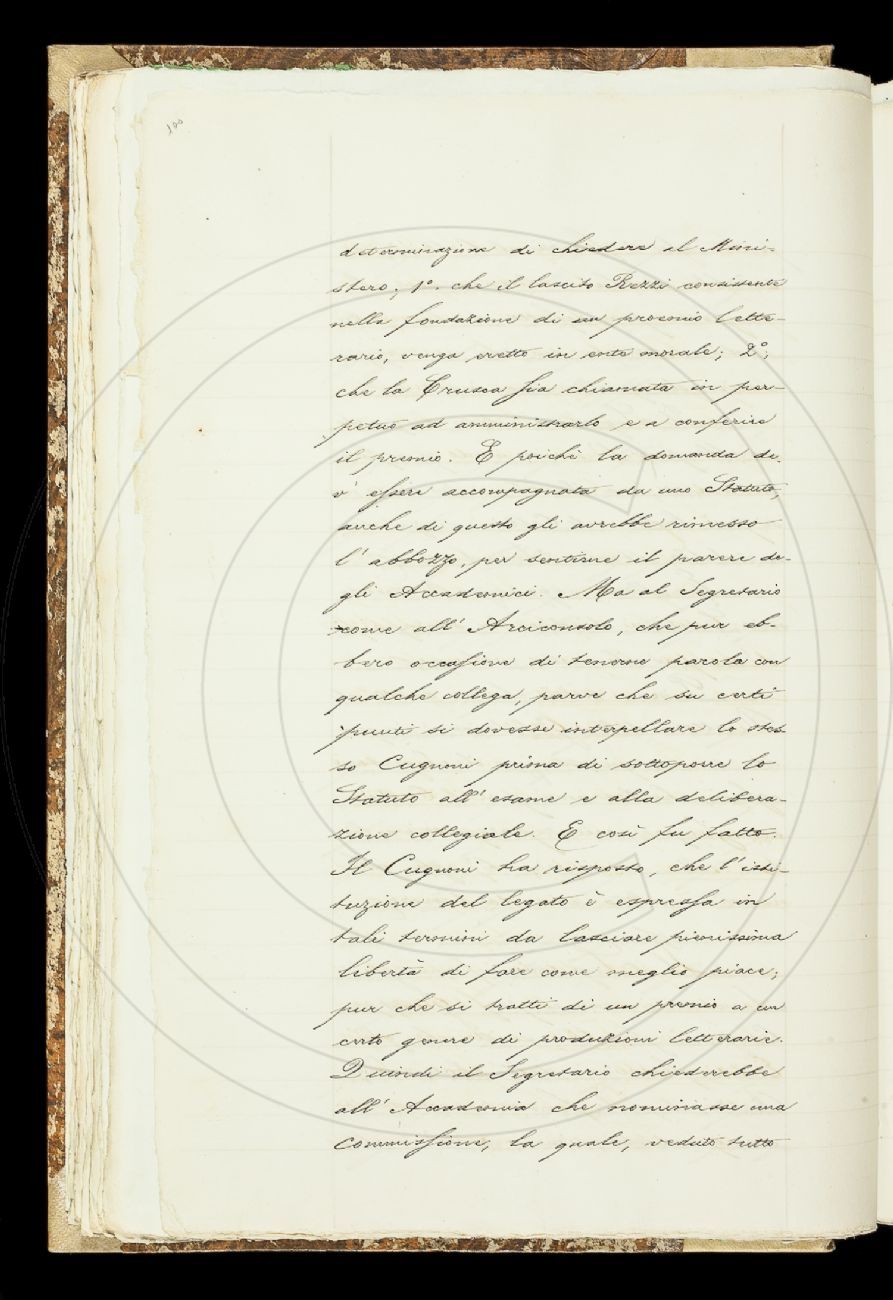 100
determinazione di chiedere al Mini-
stero; 1°. che il lascito Rezzi consistente
nella fondazione di un premio lette-
rario, venga eretto in ente morale; 2°;
che la Crusca sia chiamata in per-
petuo ad amministrarlo e a conferire
il premio. E poichè la domanda de-
v' essere accompagnata da uno Statuto,
anche di questo gli avrebbe rimesso
l' abbozzo, per sentirne il parere de-
gli Accademici. Ma al Segretario
come all' Arciconsolo, che pur eb-
bero occasione di tenerne parola con
qualche collega, parve che su certi
punti si dovesse interpellare lo stes-
so Cugnoni prima di sottoporre lo
Statuto all' esame e alla delibera-
zione collegiale. E così fu fatto.
Il Cugnoni ha risposto, che l' isti-
tuzione del legato è espressa in
tali termini da lasciare pienissima
libertà di fare come meglio piace;
pur che si tratti di un premio a un
certo genere di produzioni letterarie.
Quindi il Segretario chiederebbe
all' Accademia che nominasse una
Commissione, la quale, veduto tutto